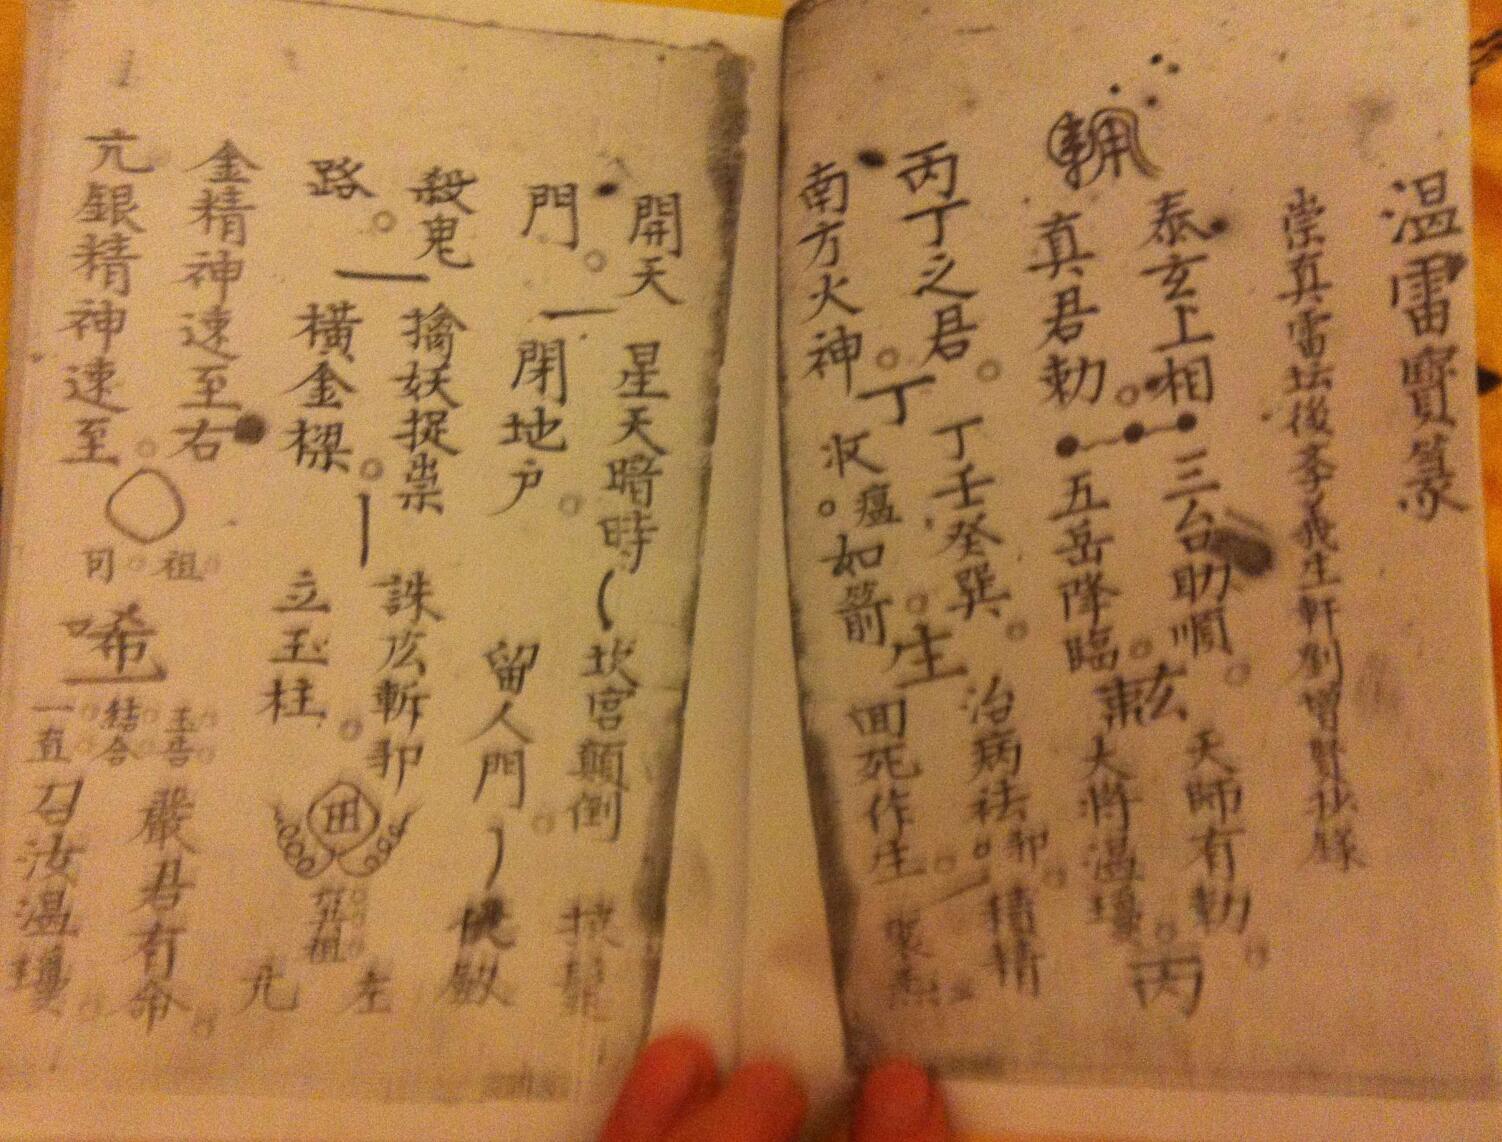 温雷寳篆
崇真雷坛後季義生軒劉增賢抄錄
泰玄上相
三台助順
天師有勅
真君勅
五岳降臨
大將温瓊
丙
丙丁之君
丁壬癸巽
治病祛邪
精精
丁
生
南方火神
收瘟如箭
回死作生
開天
星天暗時
坎宮顛倒
門
閉地戶
留人門
殺鬼
擒妖捉祟
誅厷斬邪
左
路
橫金樑
立玉柱
祖
金精神速至右
祖
嚴君有命
亢銀精神速至
司
希
結合
一直
召汝温瓊